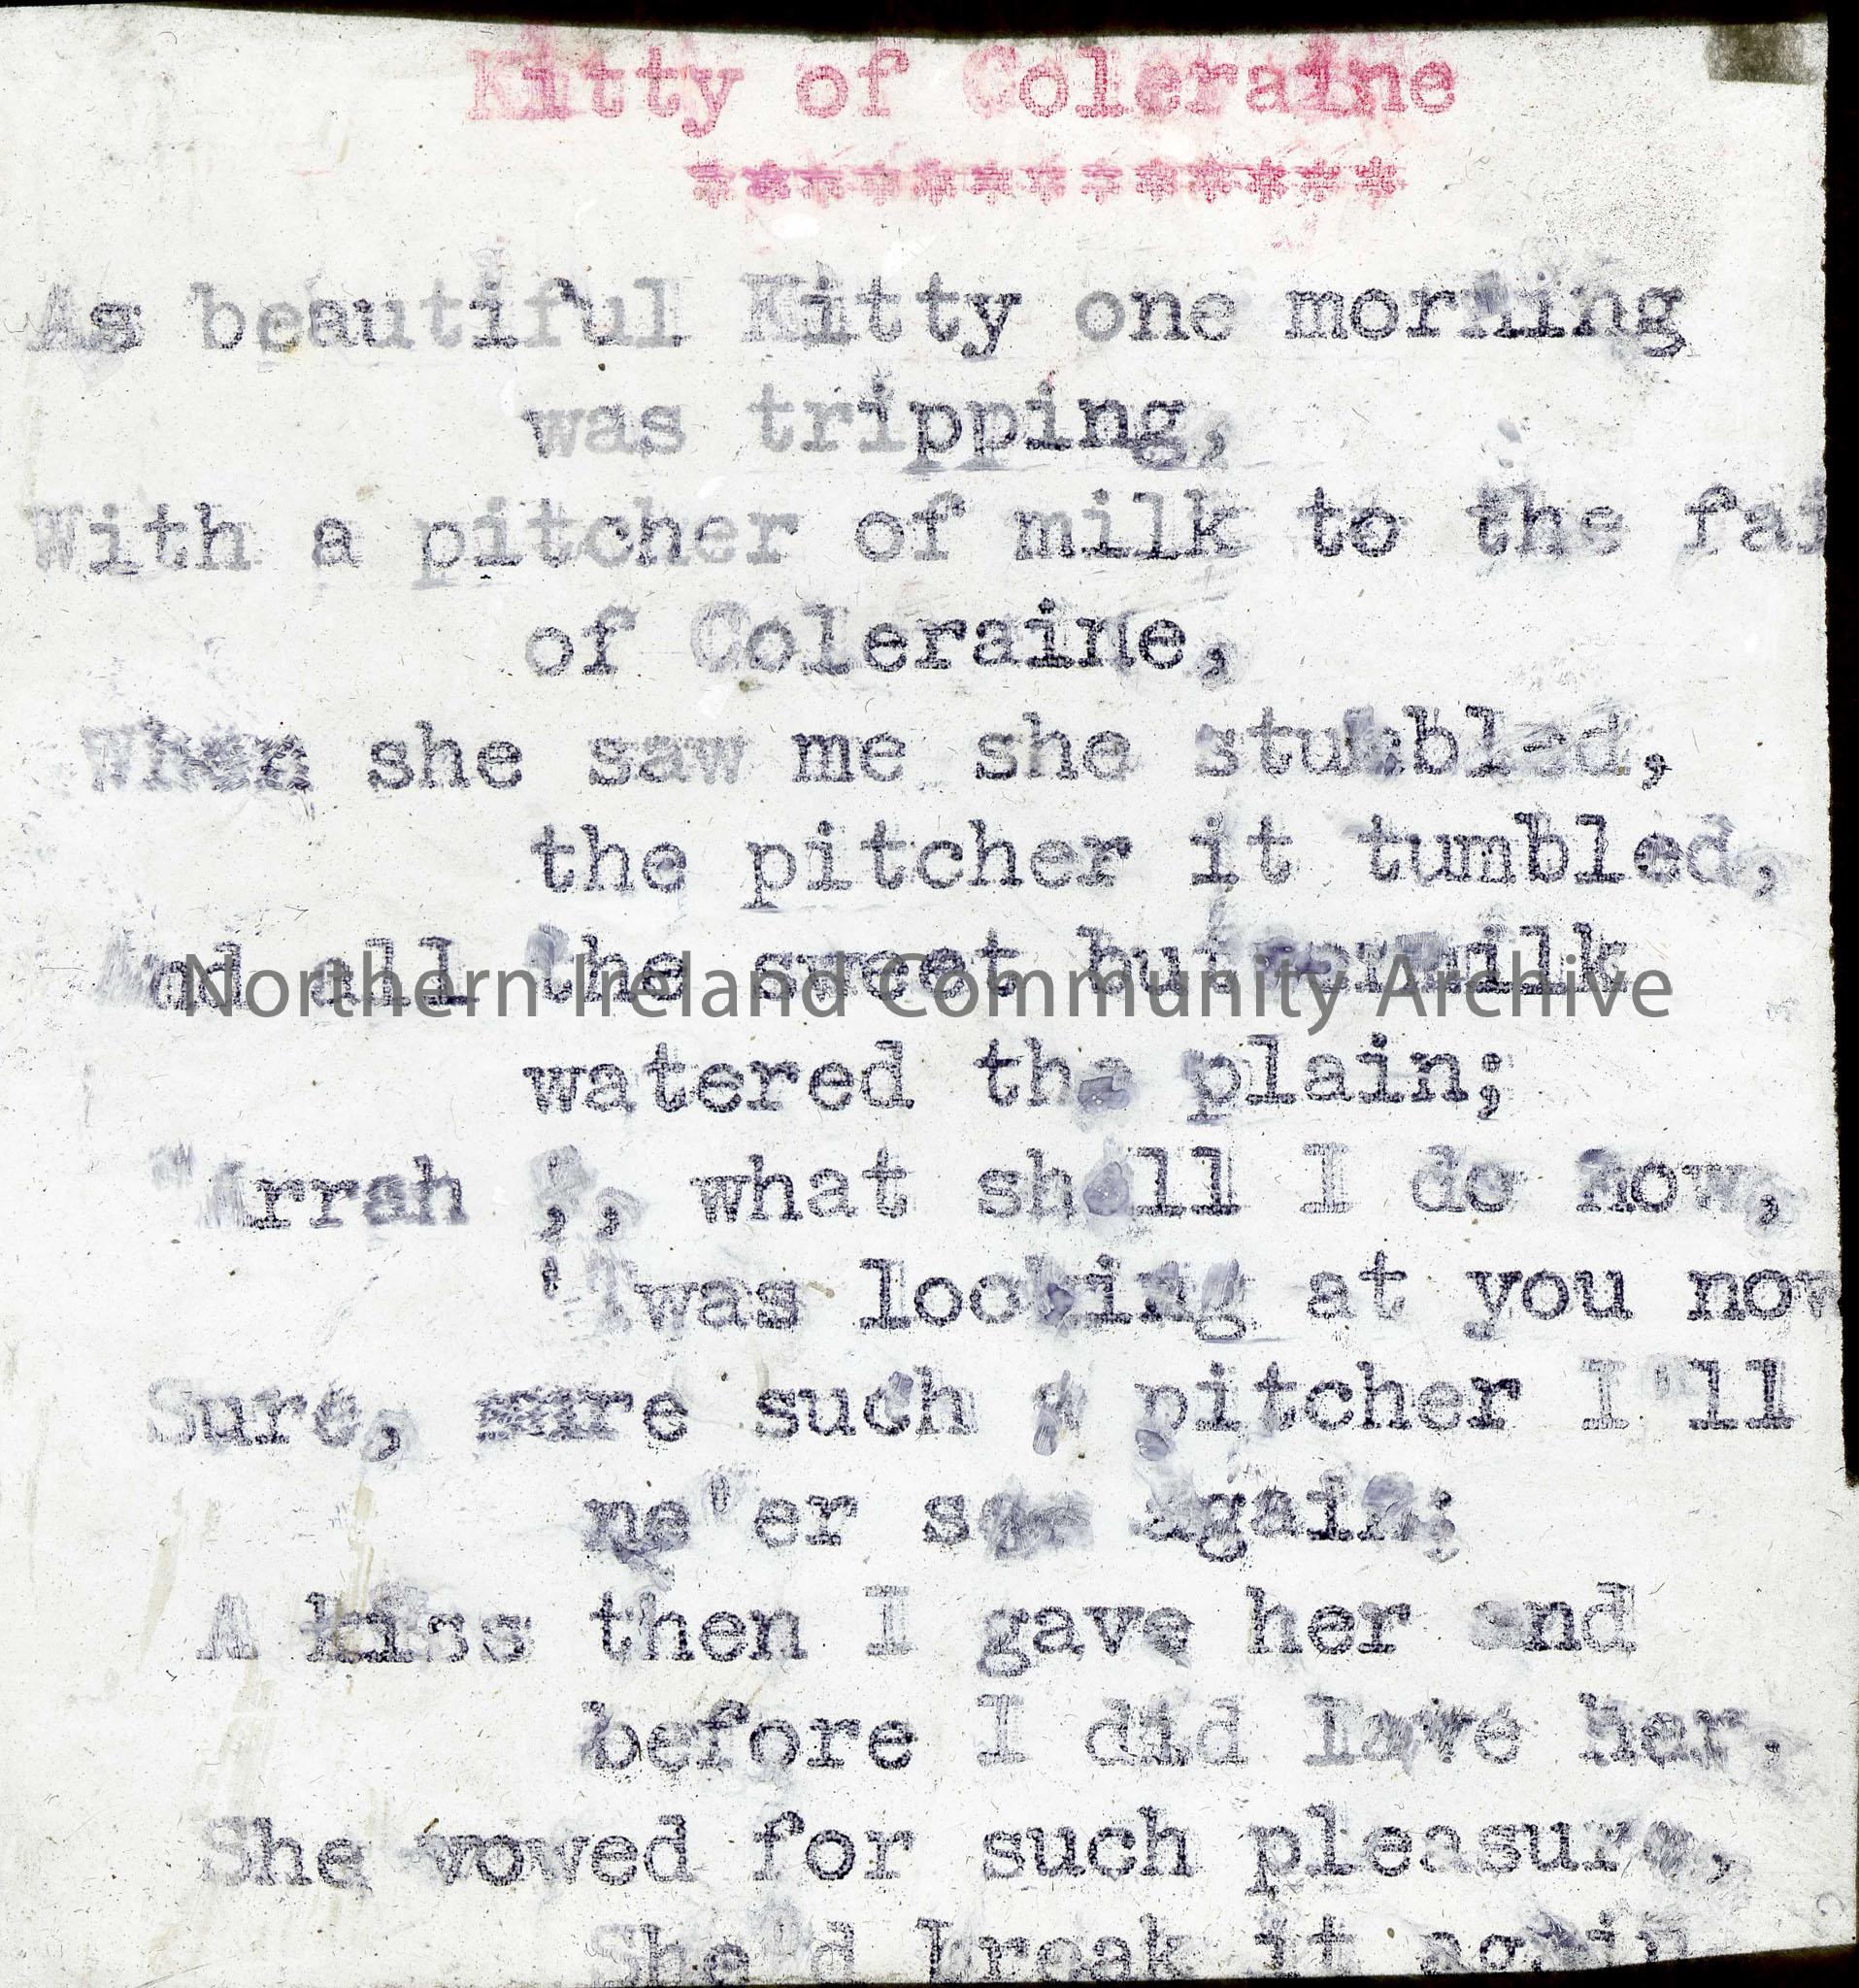 Kitty of Coleraine
*************
As beautiful Kitty one morning
was tripping,
With a pitcher of milk to the fai
of Coleraine,
When she saw me she stumbled,
the pitcher it tumbled,
And all the sweet buttermilk
watered the plain;
"Arrah ,, what shall I do now,
'Twas looking at you now
Sure, such a pitcher I'll
ne'er see again;
A kiss then I gave her and
before I did leave her.
She vowed for such pleasure,
She'd break it again
Northern Ireland Community Archive